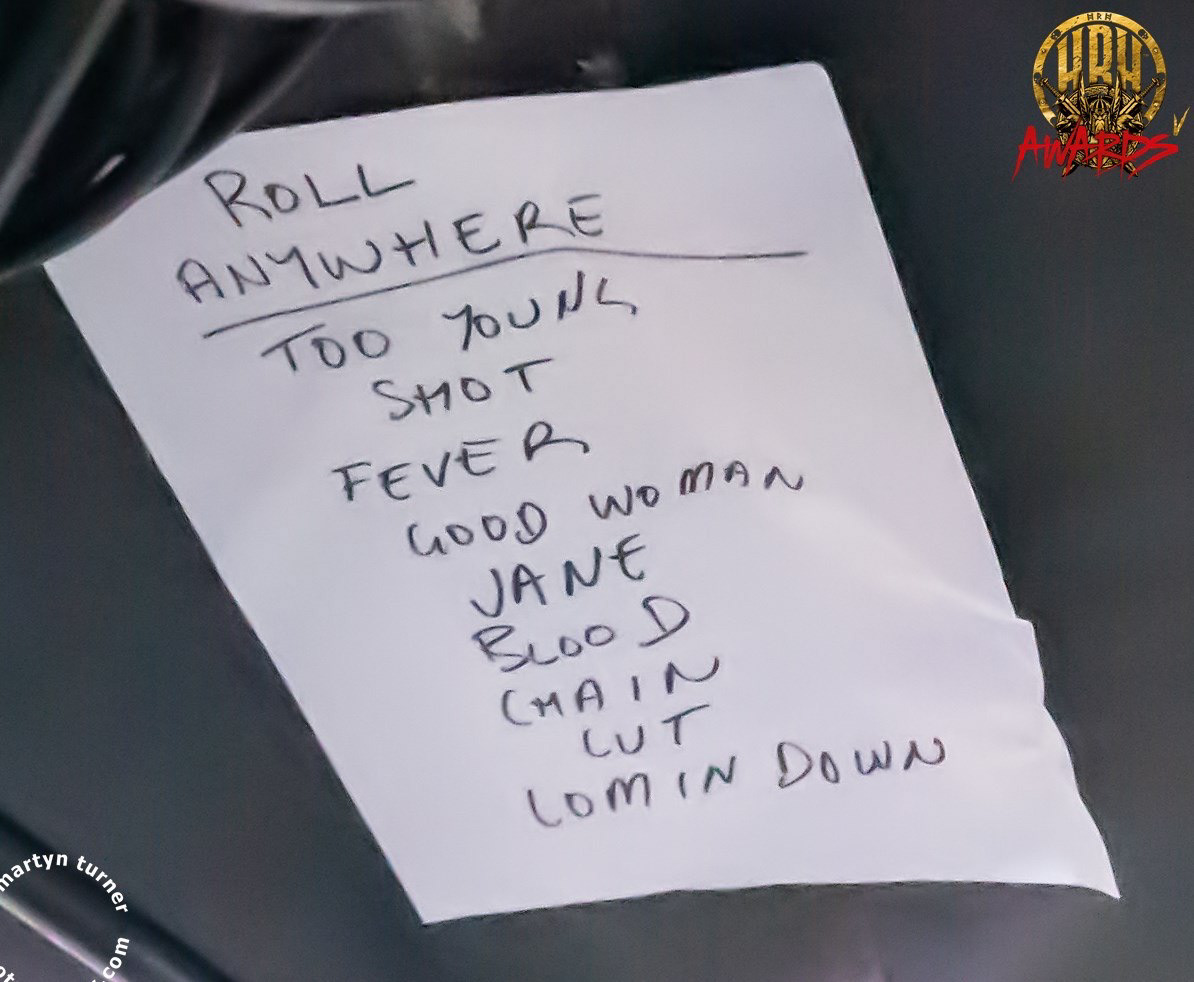 HRH
HRH
AWARDS V
ROLL
ANYWHERE
TOO YOUNG
SHOT
FEVER
GOOD WOMAN
JANE
BLOOD
CHAIN
CUT
COMIN DOWN
martyn turner
com